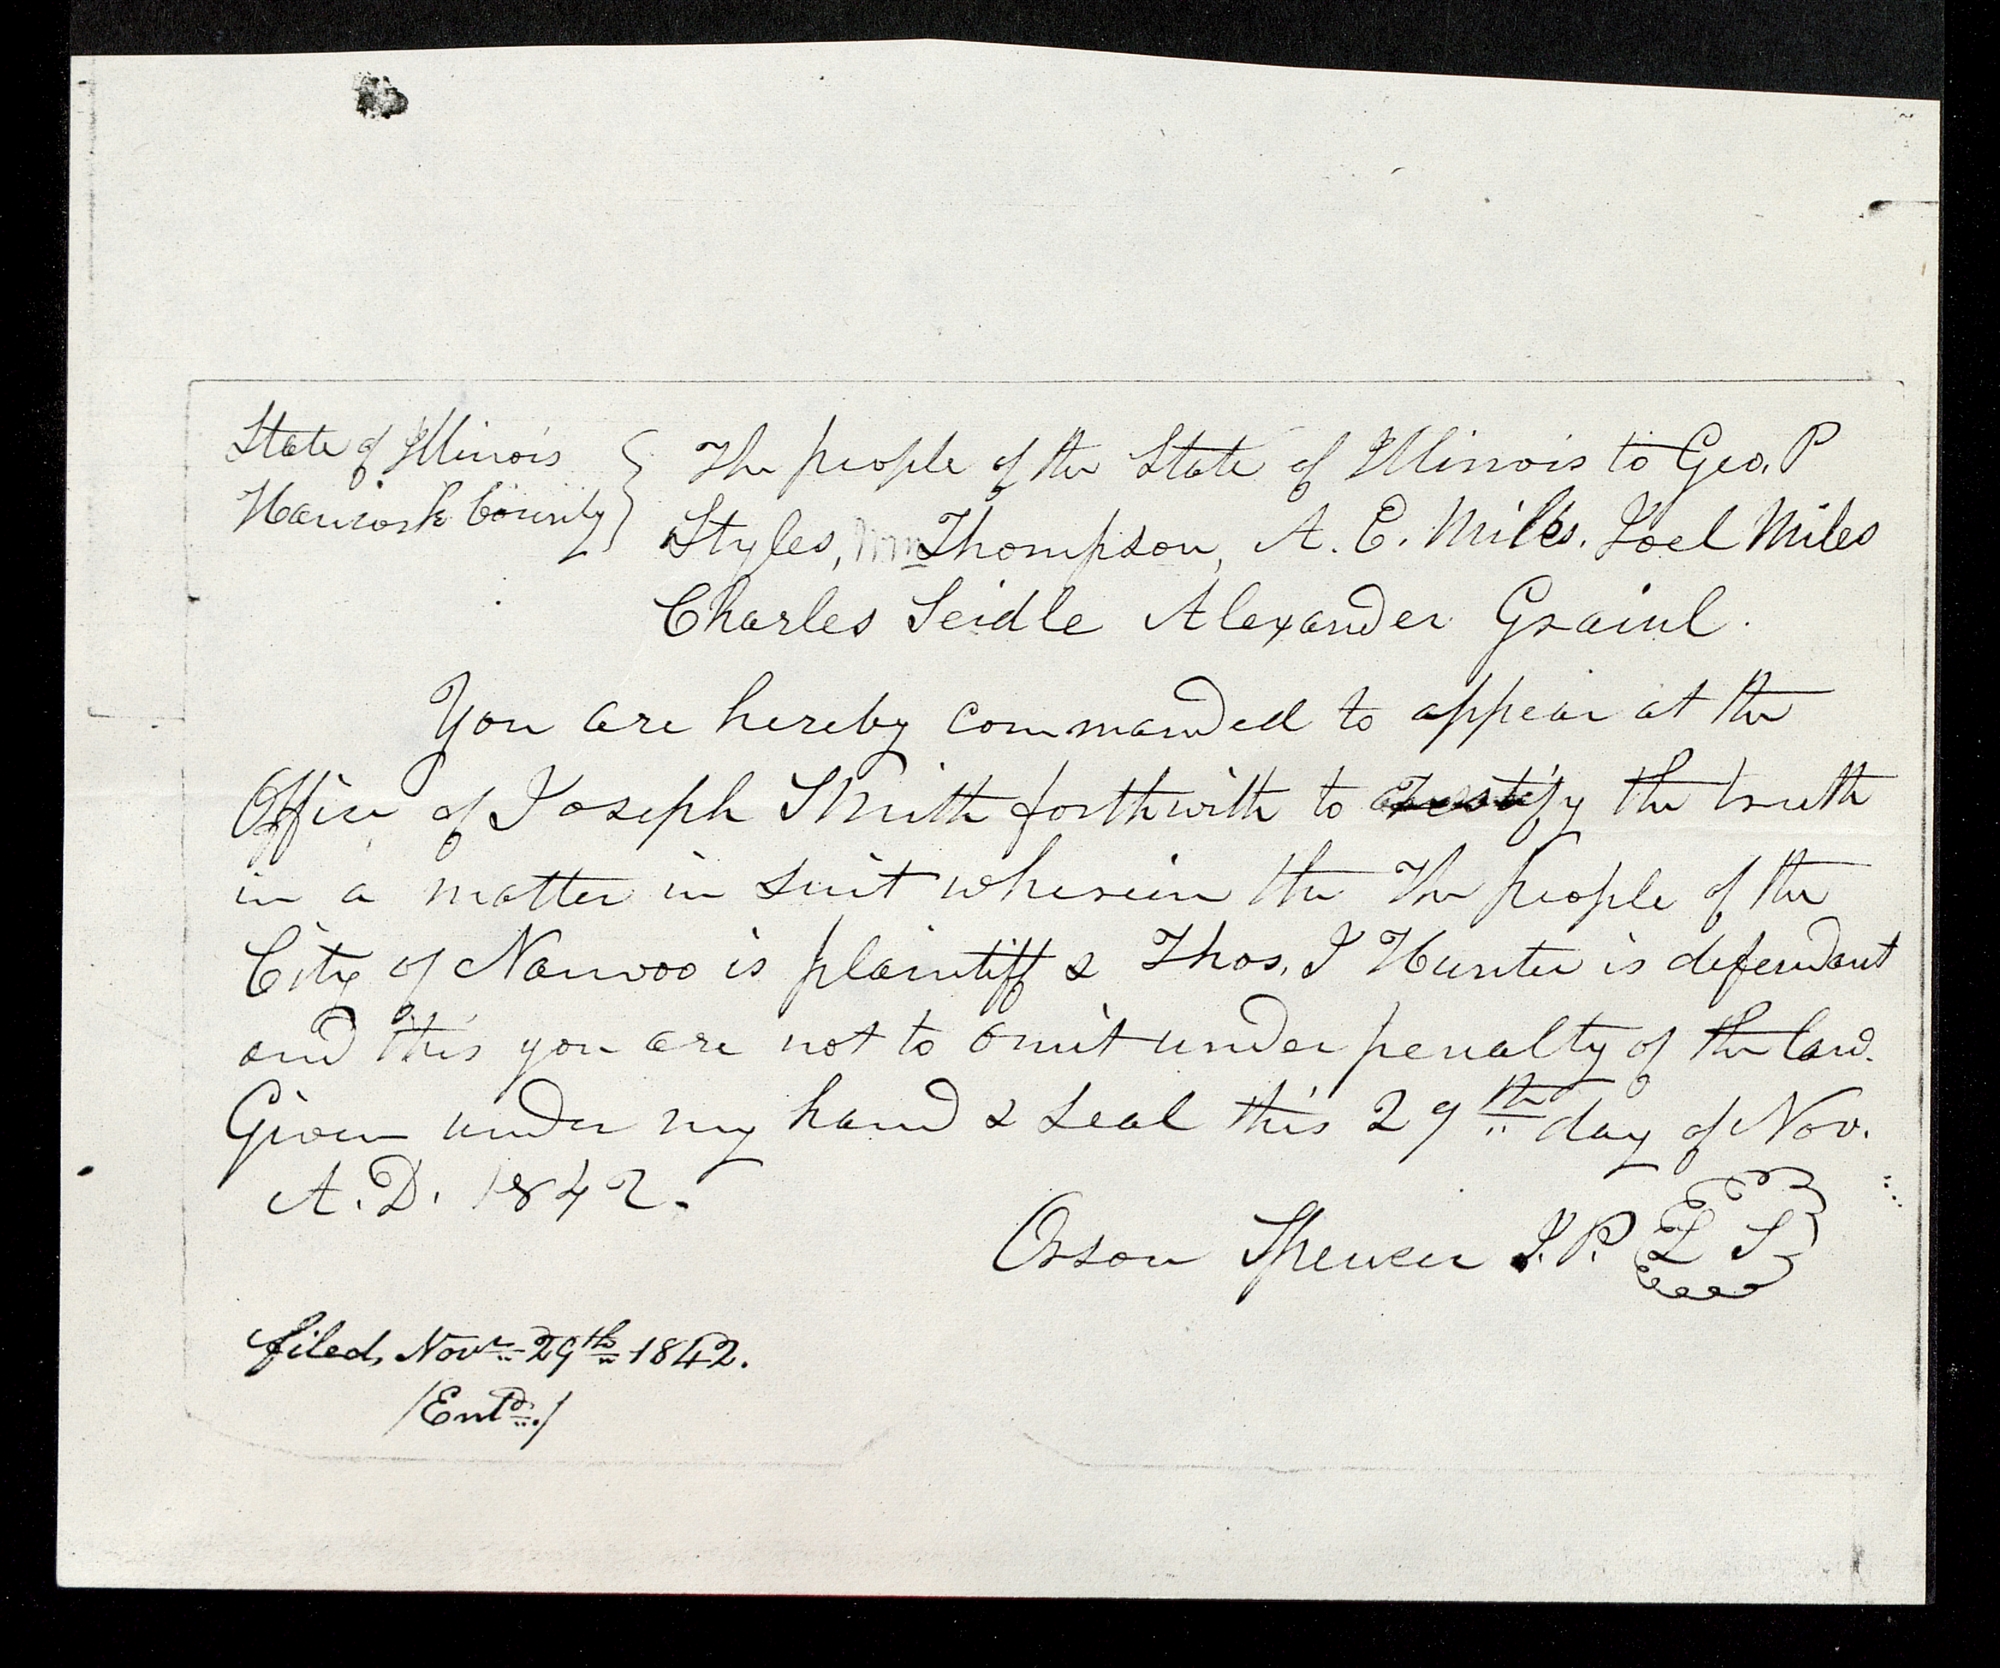 State of Illinois
Hancock County
The people of the State of Illinois to Geo. P
Styles, Wm Thompson, A. E. Miles, Joel Miles
Charles Seidle Alexander
You are hereby commanded to appear at the
Office of Joseph Smith forthwith to testify the truth
in a matter in suit wherein the The people of the
City of Nauvoo is plaintiff & Thos. J Hunter is defendant
and this you are not to omit under penalty of the law.
Given under my hand & seal this 29th day of Nov.
A. D. 1842.
Orson Spencer J. P. L S
filed, Novr 29th 1842.
/Entd./